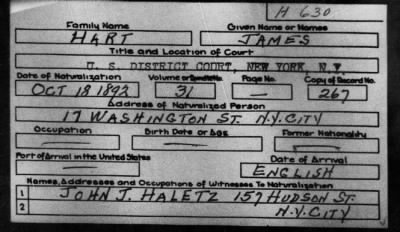 H 630
Family Name Given Name or Names
HART JAMES
Title and Location of Court
U. S. DISTRICT COURT, NEW YORK, N.Y.
Date of Naturalization Volume or Bundle No. Page No. Copy of Record No.
OCT 18 1892 31 — 267
Address of Naturalized Person
17 WASHINGTON ST. N.Y. CITY
Occupation Birth Date or Age Former Nationality
— — —
Port of Arrival in the United States Date of Arrival
— ENGLISH
Names, Addresses and Occupations of Witnesses To Naturalization
1 JOHN J. HALETZ 157 HUDSON ST.
2 N.Y. CITY